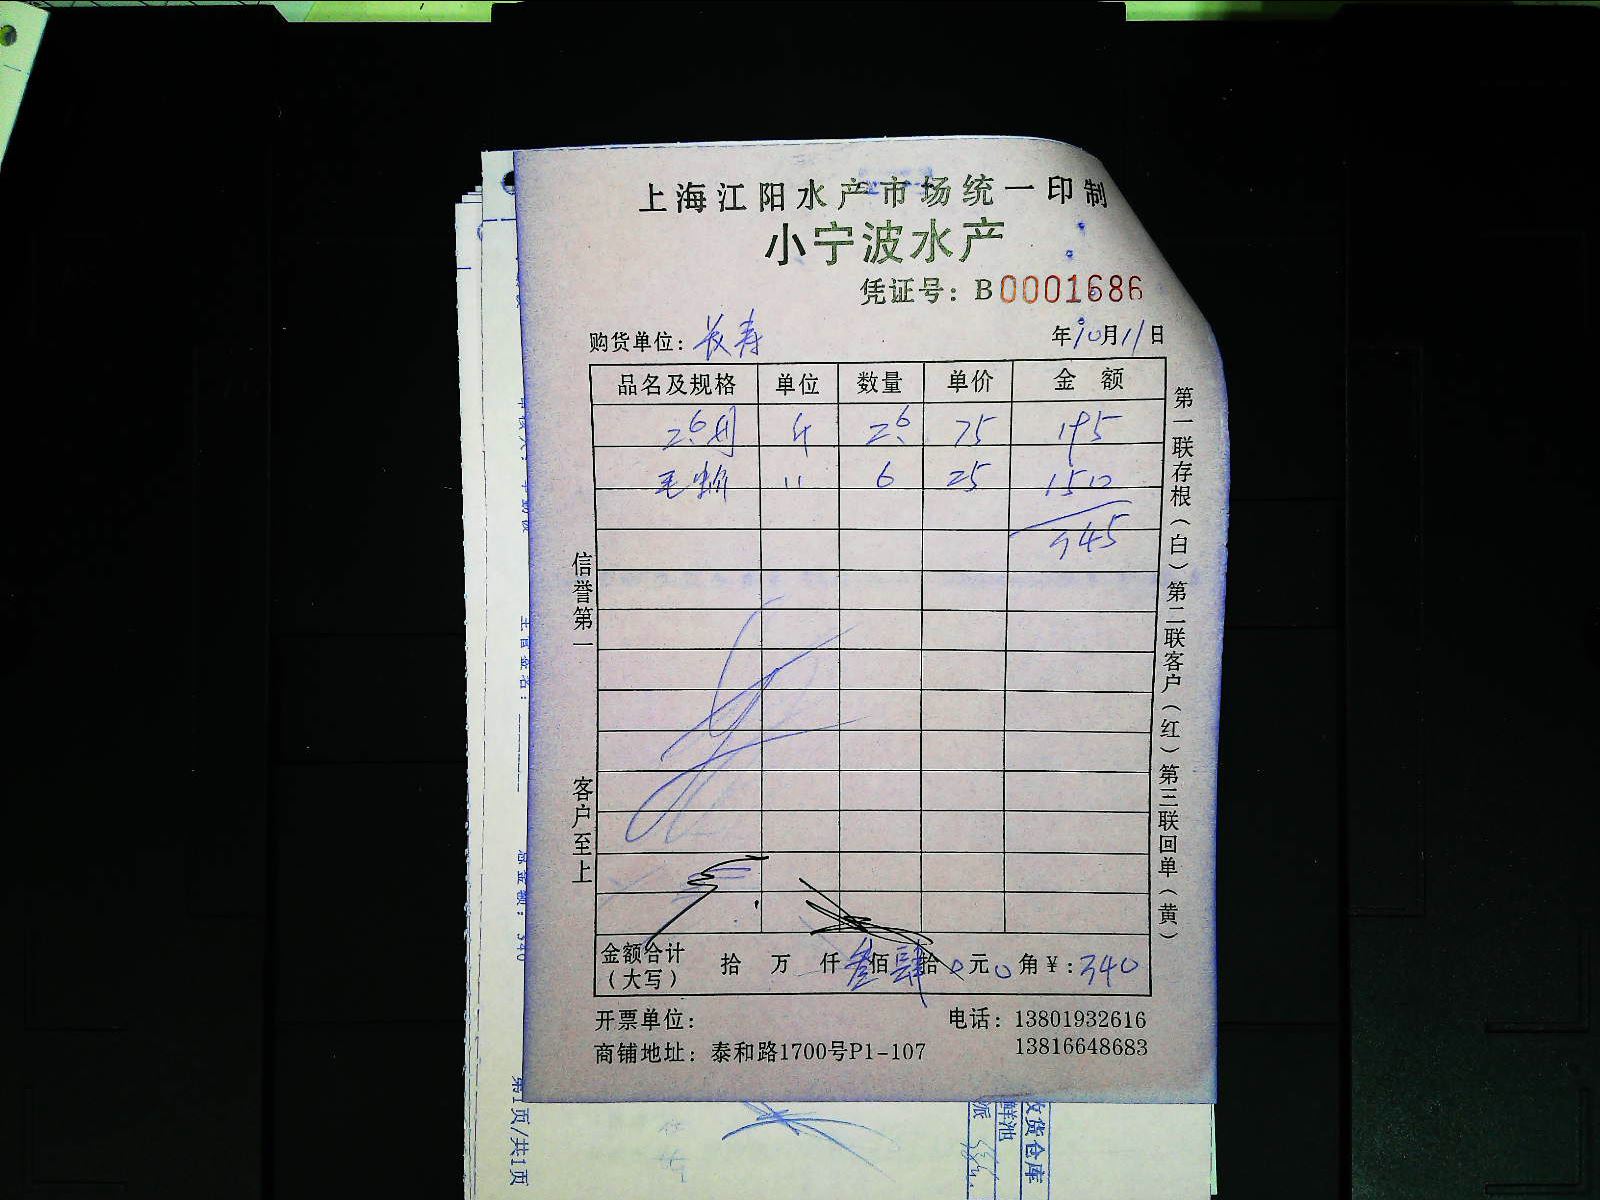 上海江阳水产市场统一印制
小宁波水产
凭证号：B0001686
购货单位：长寿
年10月11日
品名及规格 单位 数量 单价 金额
斤 2.6 75 195
毛蚶 〃 6 25 150
345
信誉第一
客户至上
第一联存根（白）第二联客户（红）第三联回单（黄）
金额合计（大写） 拾 万 仟 叁佰肆拾0元0角¥：340
开票单位：
电话：13801932616
商铺地址：泰和路1700号P1-107
13816648683
第1页/共1页
收货仓库
鲜池
派